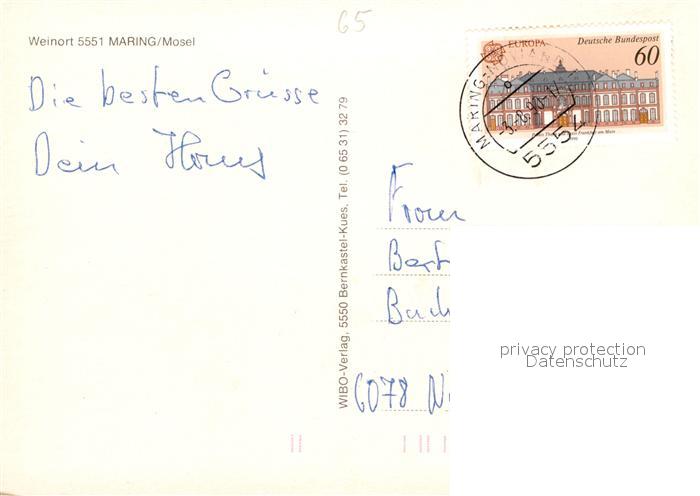 65
Weinort 5551 MARING/Mosel
Die besten Grüsse
Dein Hans
WIBO-Verlag, 5550 Bernkastel-Kues, Tel. (0 65 31) 32 79
EUROPA
Deutsche Bundespost
60
MARING-NOVIAND
5552
Frau
6078
privacy protection
Datenschutz